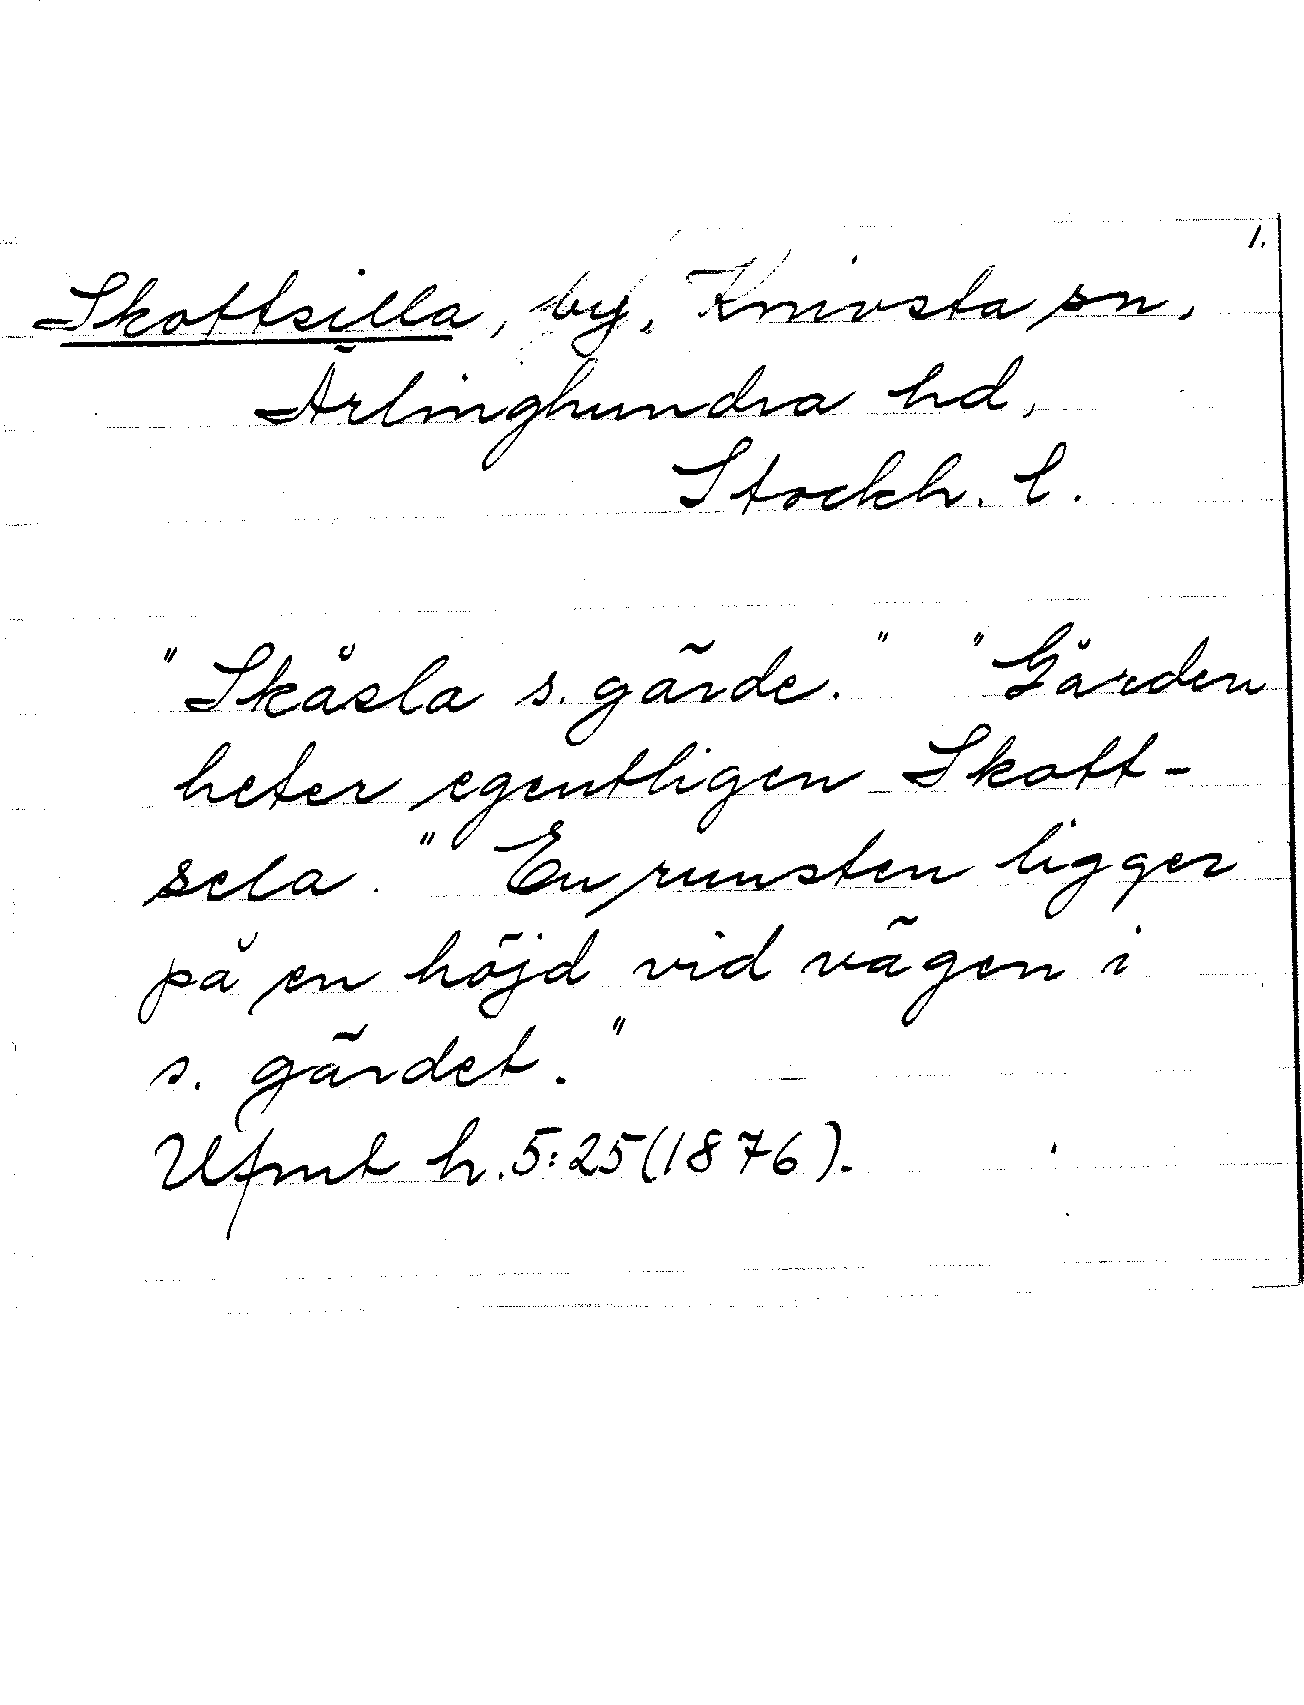 1.
Skottsilla, by, Knivsta sn,
Ärlinghundra hd,
Stockh. l.
"Skåsla s. gärde." "Gården
heter egentligen Skott-
sela." En runsten ligger
på en höjd vid vägen i
s. gärdet."
Ufmt h. 5:25 (1876).